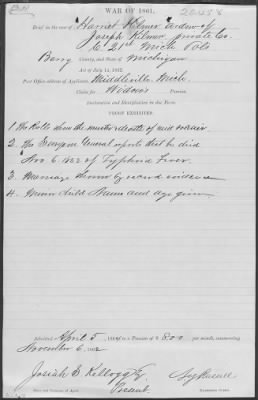 20458
WAR OF 1861.
Brief in the case of Harriet Kilmer widow of
Joseph Kilmer private Co.
C 21st Mich Vols
Barry County, and State of Michigan
Act of July 14, 1862.
Post Office address of Applicant, Middleville Mich.
Claim for Widow's Pension.
Declaration and Identification in due Form.
PROOF EXHIBITED.
1 The Rolls show the muster & death of said warrior
2. The Surgeon General reports that he died
Nov 6. 1862 of Typhoid Fever.
3. Marriage shown by record evidence
4. Minor child Name and age given
Admitted April 5 1864 to a Pension of $8.00 per month, commencing
November 6, 1862
Josiah B Kellogg
Present.
Name and Residence of Agent.
Examining Clerk.